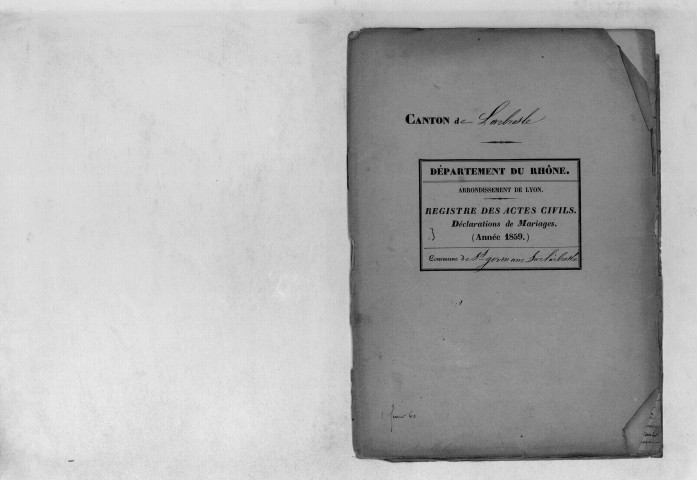 CANTON de Larbresle
DÉPARTEMENT DU RHÔNE.
ARRONDISSEMENT DE LYON.
REGISTRE DES ACTES CIVILS.
Déclarations de Mariages.
(Année 1859.)
Commune de St germain Sur l'arbresle